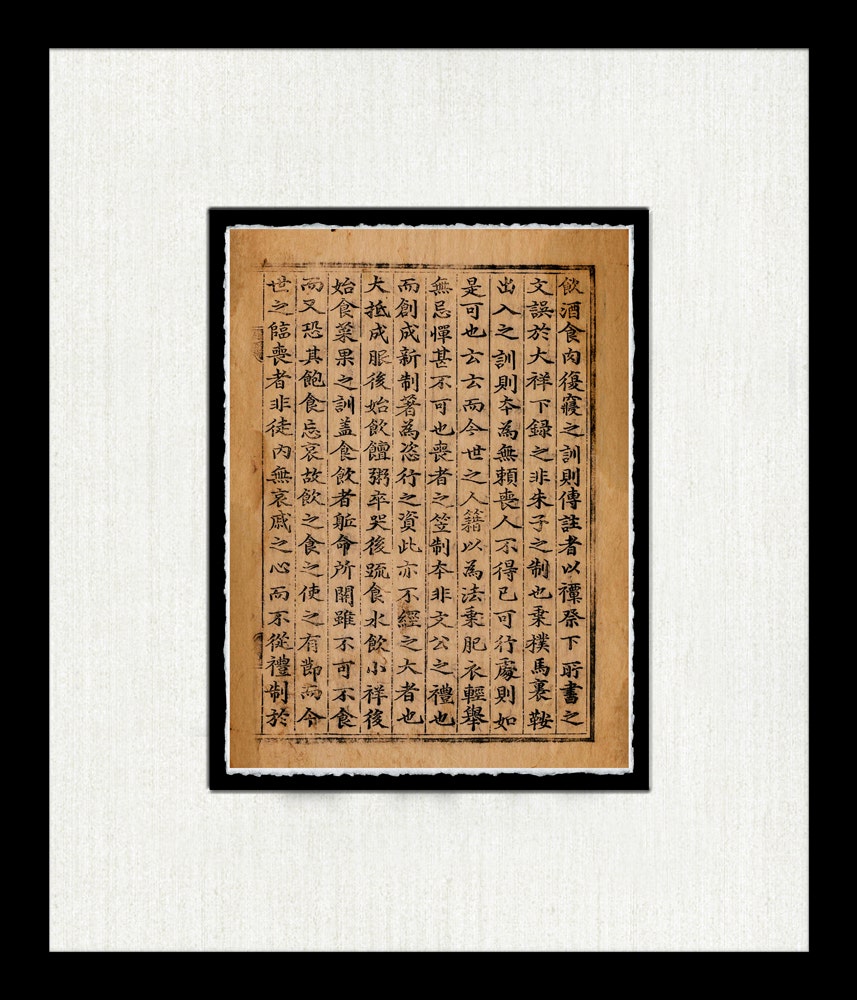 飲酒食肉復寢之訓則傳註者以禫祭下所書之
文誤於大祥下録之非朱子之制也乗樸馬裹鞍
出入之訓則夲為無頼喪人不得已可行處則如
是可也云云而今世之人籍以為法乗肥衣輕舉
無忌憚甚不可也喪者之笠制夲非文公之禮也
而創成新制著為恣行之資此亦不經之大者也
大抵成服後始飲饘粥卒哭後䟽食水飲小祥後
始食菜果之訓盖食飲者軀命所關雖不可不食
而又恐其飽食忘哀故飲之食之使之有節而今
世之臨喪者非徒内無哀戚之心而不從禮制於